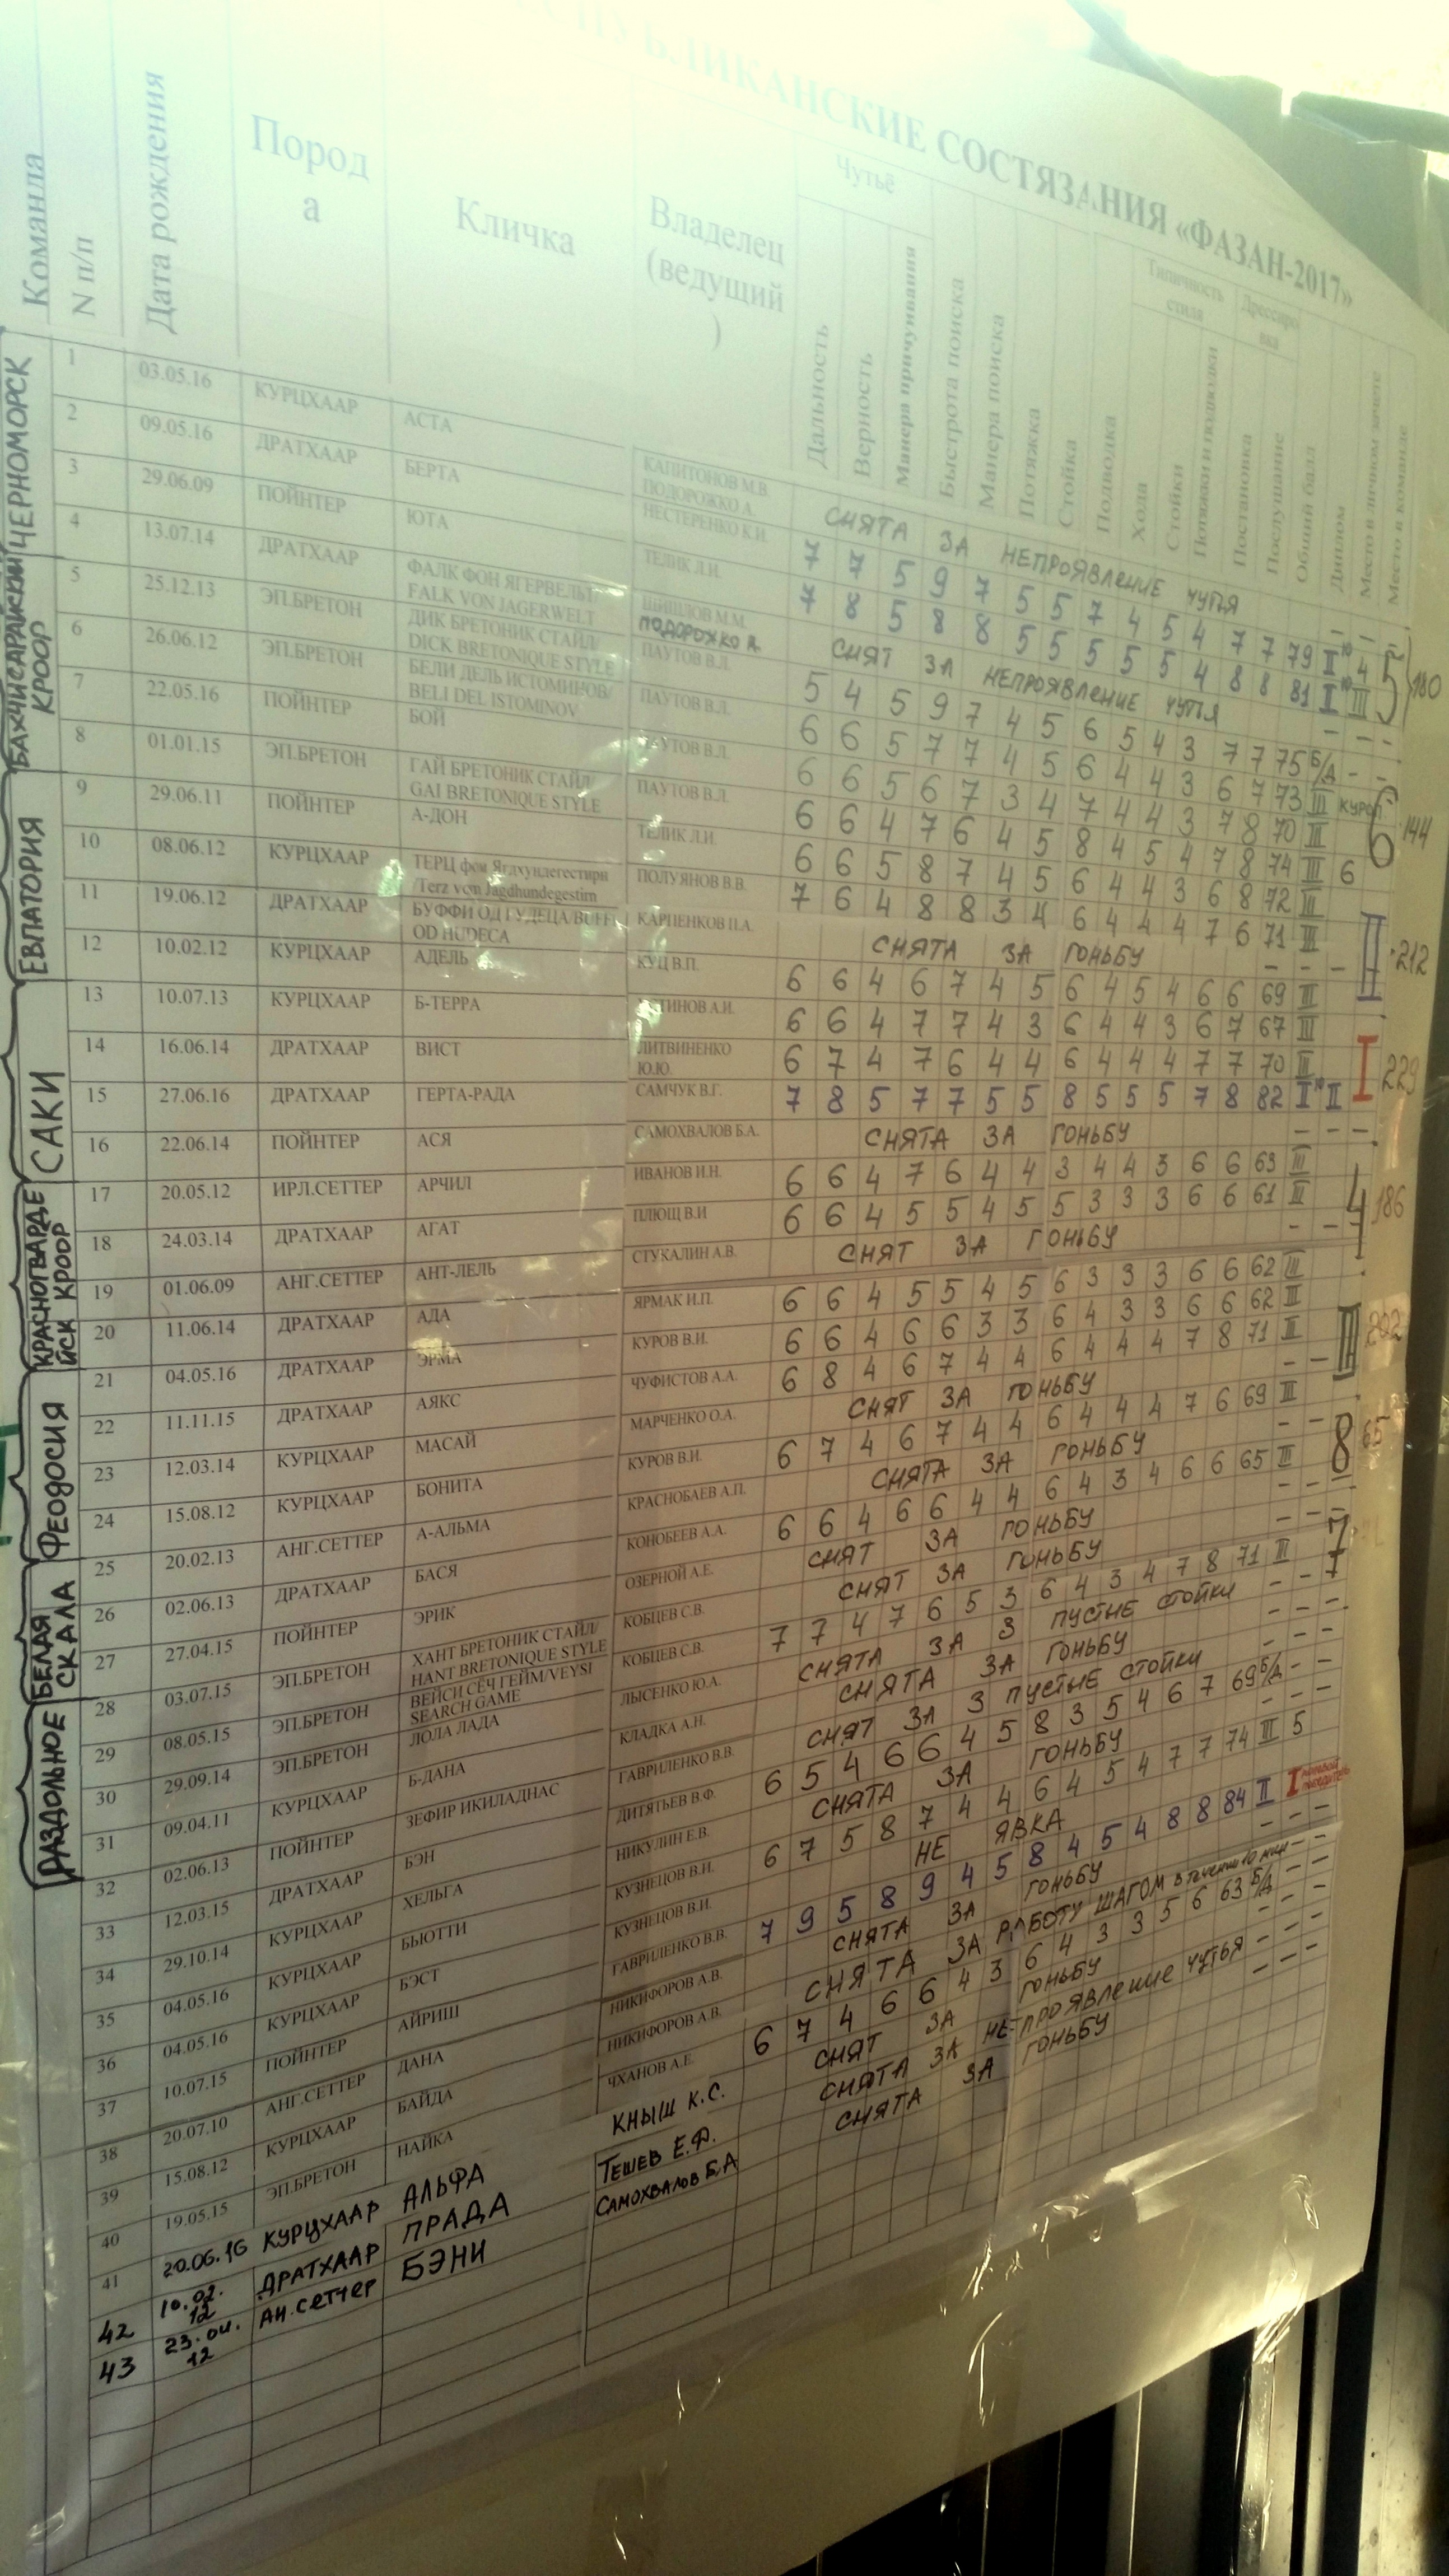 РЕСПУБЛИКАНСКИЕ СОСТЯЗАНИЯ «ФАЗАН-2017»
Команда N п/п Дата рождения Пород а Кличка Владелец (ведущий ) Чутьё Дальность Верность Манера причуивания Быстрота поиска Манера поиска Потяжка Стойка Подводка Типичность стиля Хода Стойки Потяжки и подводки Дрессиро вка Постановка Послушание Общий балл Диплом Место в личном зачете Место в команде
ЧЕРНОМОРСК
1 03.05.16 КУРЦХААР АСТА КАПИТОНОВ М.В. ПОДОРОЖКО А. СНЯТА ЗА НЕПРОЯВЛЕНИЕ ЧУТЬЯ - - -
2 09.05.16 ДРАТХААР БЕРТА НЕСТЕРЕНКО К.И. 7 7 5 9 7 5 5 7 4 5 4 7 7 79 II 4
3 29.06.09 ПОЙНТЕР ЮТА ТЕЛИК Л.И. 7 8 5 8 8 5 5 5 5 5 4 8 8 81 II III 5 180
4 13.07.14 ДРАТХААР ФАЛК ФОН ЯГЕРВЕЛЬТ/ FALK VON JAGERWELT ШИШЛОВ М.М. ПОДОРОЖКО А. СНЯТ ЗА НЕПРОЯВЛЕНИЕ ЧУТЬЯ - - -
БАХЧИСАРАЙСКИЙ КРООР
5 25.12.13 ЭП.БРЕТОН ДИК БРЕТОНИК СТАЙЛ/ DICK BRETONIQUE STYLE ПАУТОВ В.Л. 5 4 5 9 7 4 5 6 5 4 3 7 7 75 Б/Д - -
6 26.06.12 ЭП.БРЕТОН БЕЛИ ДЕЛЬ ИСТОМИНОВ/ BELI DEL ISTOMINOV ПАУТОВ В.Л. 6 6 5 7 7 4 5 6 4 4 3 6 7 73 III КУРОП
7 22.05.16 ПОЙНТЕР БОЙ ПАУТОВ В.Л. 6 6 5 6 7 3 4 7 4 4 3 7 8 70 III 6 144
8 01.01.15 ЭП.БРЕТОН ГАЙ БРЕТОНИК СТАЙЛ/ GAI BRETONIQUE STYLE ПАУТОВ В.Л. 6 6 4 7 6 4 5 8 4 5 4 7 8 74 III 6
ЕВПАТОРИЯ
9 29.06.11 ПОЙНТЕР А-ДОН ТЕЛИК Л.И 6 6 5 8 7 4 5 6 4 4 3 6 8 72 III
10 08.06.12 КУРЦХААР ТЕРЦ фон Ягдхундегестирн /Terz von Jagdhundegestirn ПОЛУЯНОВ В.В. 7 6 4 8 8 3 4 6 4 4 4 7 6 71 III II 212
11 19.06.12 ДРАТХААР БУФФИ ОД ГУДЕЦА/BUFFI OD HUDECA КАРПЕНКОВ П.А. СНЯТА ЗА ГОНЬБУ - - -
12 10.02.12 КУРЦХААР АДЕЛЬ КУЦ В.П. 6 6 4 6 7 4 5 6 4 5 4 6 6 69 III
САКИ
13 10.07.13 КУРЦХААР Б-ТЕРРА УСТИНОВ А.И. 6 6 4 7 7 4 3 6 4 4 3 6 7 67 III
14 16.06.14 ДРАТХААР ВИСТ ЛИТВИНЕНКО Ю.Ю. 6 7 4 7 6 4 4 6 4 4 4 7 7 70 III I 229
15 27.06.16 ДРАТХААР ГЕРТА-РАДА САМЧУК В.Г. 7 8 5 7 7 5 5 8 5 5 5 7 8 82 II II
16 22.06.14 ПОЙНТЕР АСЯ САМОХВАЛОВ Б.А. СНЯТА ЗА ГОНЬБУ - - -
КРАСНОГВАРДЕЙСК КРООР
17 20.05.12 ИРЛ.СЕТТЕР АРЧИЛ ИВАНОВ И.Н. 6 6 4 7 6 4 4 3 4 4 3 6 6 63 III
18 24.03.14 ДРАТХААР АГАТ ПЛЮЩ В.И 6 6 4 5 5 4 5 5 3 3 3 6 6 61 III 4 186
19 01.06.09 АНГ.СЕТТЕР АНТ-ЛЕЛЬ СТУКАЛИН А.В. СНЯТ ЗА ГОНЬБУ - - -
20 11.06.14 ДРАТХААР АДА ЯРМАК И.П. 6 6 4 5 5 4 5 6 3 3 3 6 6 62 III
ФЕОДОСИЯ
21 04.05.16 ДРАТХААР ЭРМА КУРОВ В.И. 6 6 4 6 6 3 3 6 4 3 3 6 6 62 III
22 11.11.15 ДРАТХААР АЯКС ЧУФИСТОВ А.А. 6 8 4 6 7 4 4 6 4 4 4 7 8 71 III III 202
23 12.03.14 КУРЦХААР МАСАЙ МАРЧЕНКО О.А. СНЯТ ЗА ГОНЬБУ - -
24 15.08.12 КУРЦХААР БОНИТА КУРОВ В.И. 6 7 4 6 7 4 4 6 4 4 4 7 6 69 III
БЕЛАЯ СКАЛА
25 20.02.13 АНГ.СЕТТЕР А-АЛЬМА КРАСНОБАЕВ А.П. СНЯТА ЗА ГОНЬБУ - -
26 02.06.13 ДРАТХААР БАСЯ КОНОБЕЕВ А.А. 6 6 4 6 6 4 4 6 4 3 4 6 6 65 III 8 65
27 27.04.15 ПОЙНТЕР ЭРИК ОЗЕРНОЙ А.Е. СНЯТ ЗА ГОНЬБУ - - -
РАЗДОЛЬНОЕ
28 03.07.15 ЭП.БРЕТОН ХАНТ БРЕТОНИК СТАЙЛ/ HANT BRETONIQUE STYLE КОБЦЕВ С.В. СНЯТ ЗА ГОНЬБУ - - -
29 08.05.15 ЭП.БРЕТОН ВЕЙСИ СЕЧ ГЕЙМ/VEYSI SEARCH GAME КОБЦЕВ С.В. 7 7 4 7 6 5 3 6 4 3 4 7 8 71 III 7
30 29.09.14 ЭП.БРЕТОН ЛОЛА ЛАДА ЛЫСЕНКО Ю.А. СНЯТА ЗА 3 ПУСТЫЕ СТОЙКИ - -
31 09.04.11 КУРЦХААР Б-ДАНА КЛАДКА А.Н. СНЯТА ЗА ГОНЬБУ - - -
32 02.06.13 ПОЙНТЕР ЗЕФИР ИКИЛАДНАС ГАВРИЛЕНКО В.В. СНЯТ ЗА 3 ПУСТЫЕ СТОЙКИ - - -
33 12.03.15 ДРАТХААР БЭН ДИТЯТЬЕВ В.Ф. 6 5 4 6 6 4 5 8 3 5 4 6 7 69 Б/Д - -
34 29.10.14 КУРЦХААР ХЕЛЬГА НИКУЛИН Е.В. СНЯТА ЗА ГОНЬБУ - - -
35 04.05.16 КУРЦХААР БЬЮТТИ КУЗНЕЦОВ В.И. 6 7 5 8 7 4 4 6 4 5 4 7 7 74 III 5
36 04.05.16 КУРЦХААР БЭСТ КУЗНЕЦОВ В.И. НЕ ЯВКА
37 10.07.15 ПОЙНТЕР АЙРИШ ГАВРИЛЕНКО В.В. 7 9 5 8 9 4 5 8 4 5 4 8 8 84 II I ПОЛЕВОЙ ПОБЕДИТЕЛЬ
38 20.07.10 АНГ.СЕТТЕР ДАНА НИКИФОРОВ А.В. СНЯТА ЗА ГОНЬБУ - - -
39 15.08.12 КУРЦХААР БАЙДА НИКИФОРОВ А.В. СНЯТА ЗА РАБОТУ ШАГОМ в течении 10 мин - -
40 19.05.15 ЭП.БРЕТОН НАЙКА ЧХАНОВ А.Е. 6 7 4 6 6 4 3 6 4 3 3 5 6 63 Б/Д - -
41 20.06.16 КУРЦХААР АЛЬФА КНЫШ К.С. СНЯТ ЗА ГОНЬБУ - - -
42 10.02.12 ДРАТХААР ПРАДА ТЕШЕВ Е.Ф. СНЯТА ЗА НЕПРОЯВЛЕНИЕ ЧУТЬЯ - - -
43 23.04.12 АН.СЕТТЕР БЭНИ САМОХВАЛОВ Б.А СНЯТА ЗА ГОНЬБУ - - -